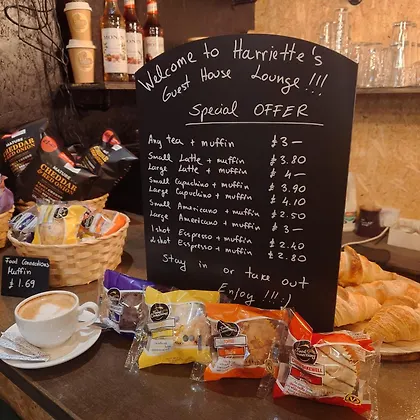 MONIN
Welcome to Harriette's
Guest House Lounge !!!
Special OFFER
Any tea + muffin £3—
Small Latte + muffin £3.80
Large Latte + muffin £4—
Small Capuchino + muffin £3.90
Large Capuchino + muffin £4.10
Small Americano + muffin £2.50
Large Americano + muffin £3—
1 shot Espresso + muffin £2.40
2 shot Espresso + muffin £2.80
Stay in or take out
Enjoy !!! :)
CHEDDAR
& ONION
CHEDDAR
Food Connections
Muffin
£1.69
BAKEWELL